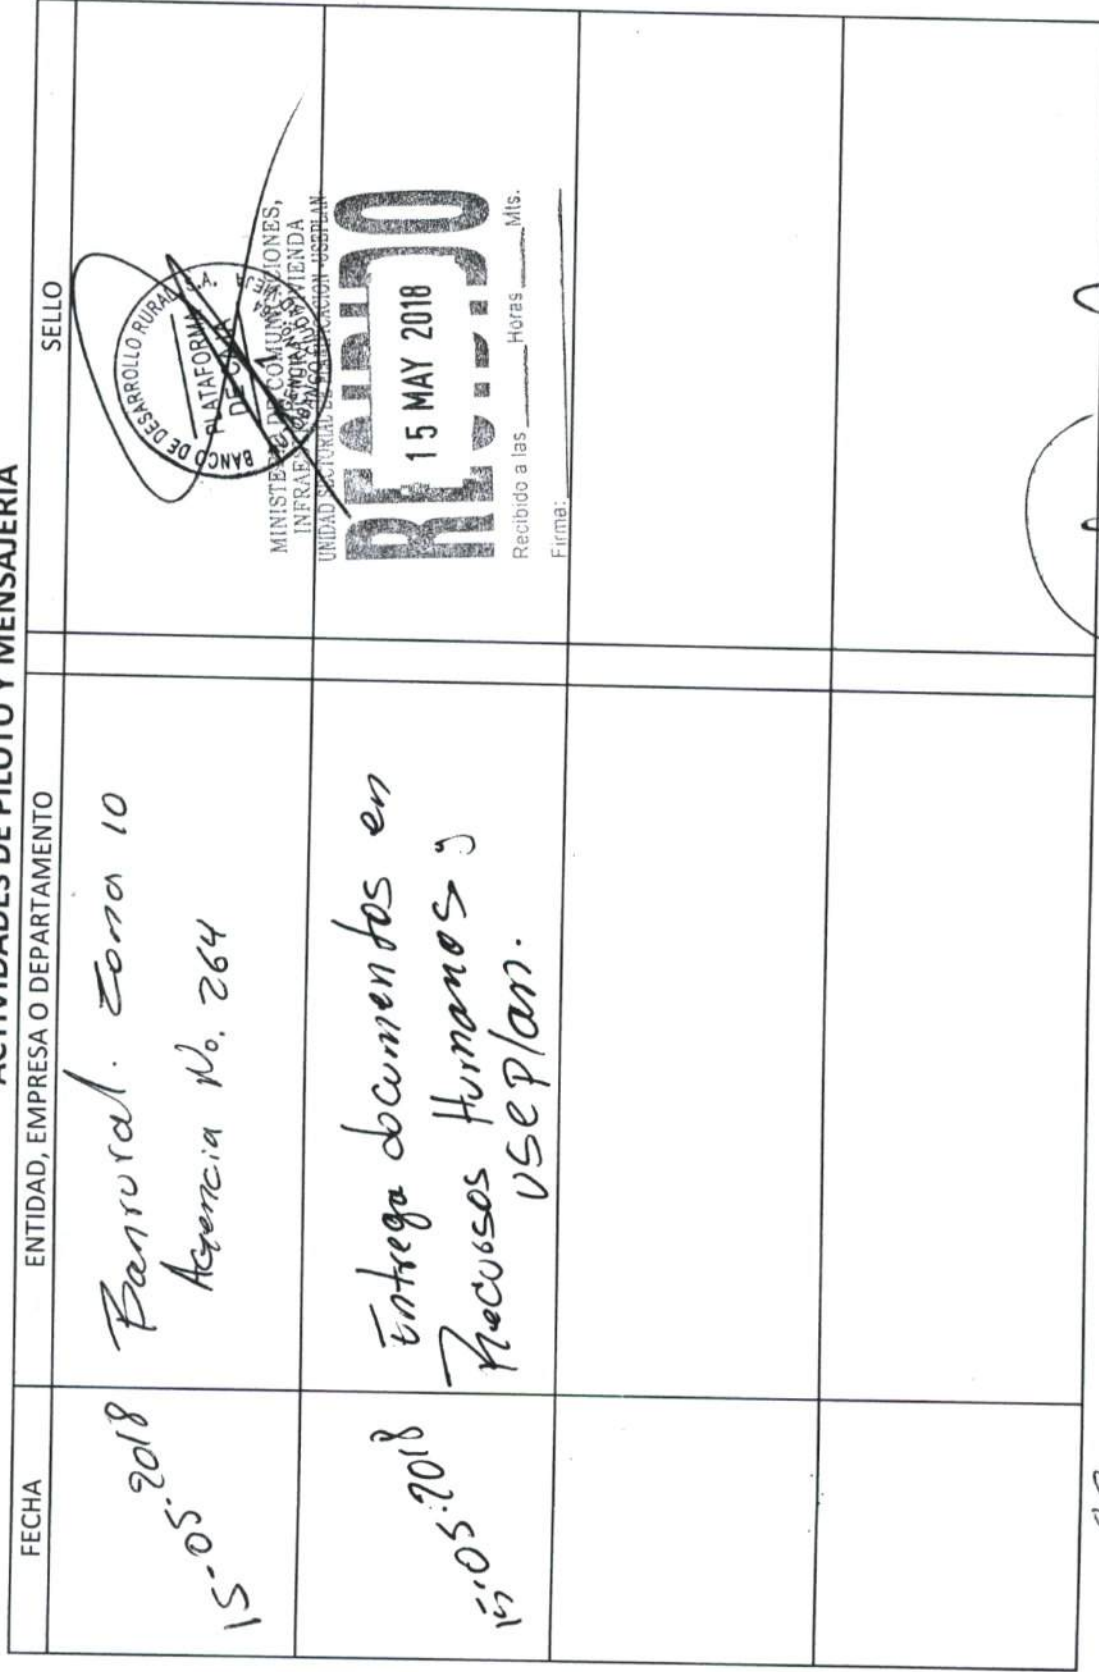 ACTIVIDADES DE PILOTO Y MENSAJERIA
FECHA
ENTIDAD, EMPRESA O DEPARTAMENTO
SELLO
15-05-2018
Banrural. Zona 10
Agencia No. 264
BANCO DE DESARROLLO RURAL S.A.
PLATAFORMA
DE CAJA
15-05-2018
Entrega documentos en
Recursos Humanos y
USEPlan.
MINISTERIO DE COMUNICACIONES,
INFRAESTRUCTURA Y VIVIENDA
UNIDAD SECTORIAL DE PLANIFICACION -USEPLAN-
RECIBIDO
15 MAY 2018
Recibido a las Horas Mts.
Firma: